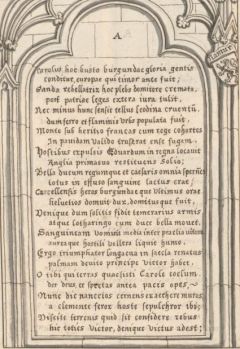 A
Carolus hoc busto burgundae gloria gentis
conditur, europae qui timor ante fuit;
Ganda rebellatrix hoc plebs domitore cremata,
post patriae leges extera iura tulit.
Nec minus hunc sensit tellus Leodina cruentum
dum ferro et flammis Urbs populata fuit.
Monte sub heritio francas cum rege cohortes
In pavidam Valido trusit ense fugam.
Hostibus expulsis Eduardum in regna locavit
Anglica primaevo restituens Solio;
Bella ducum regumque et caesaris omnia spernens
totus in effuso sanguine laetus erat;
denique dum solitis fidit temerarius armis,
atque lotharingo cum duce bella movet,
Sanguineam Vomuit media inter praelia vitam
aureaque hostili vellera liquit humo.
Ergo triumphator longaeva in saecla renatus
palmam devicto principe victor habet.
O tibi qui terras quaesisti Carole coelum
det deus, et spretas antea pacis opes,
Nunc dic nanceios cernens ex aethere muros
a clemente ferox hoste sepulchror ibi;
Discite terrenis quid sit confidere rebus
hic toties victor, denique victus adest;